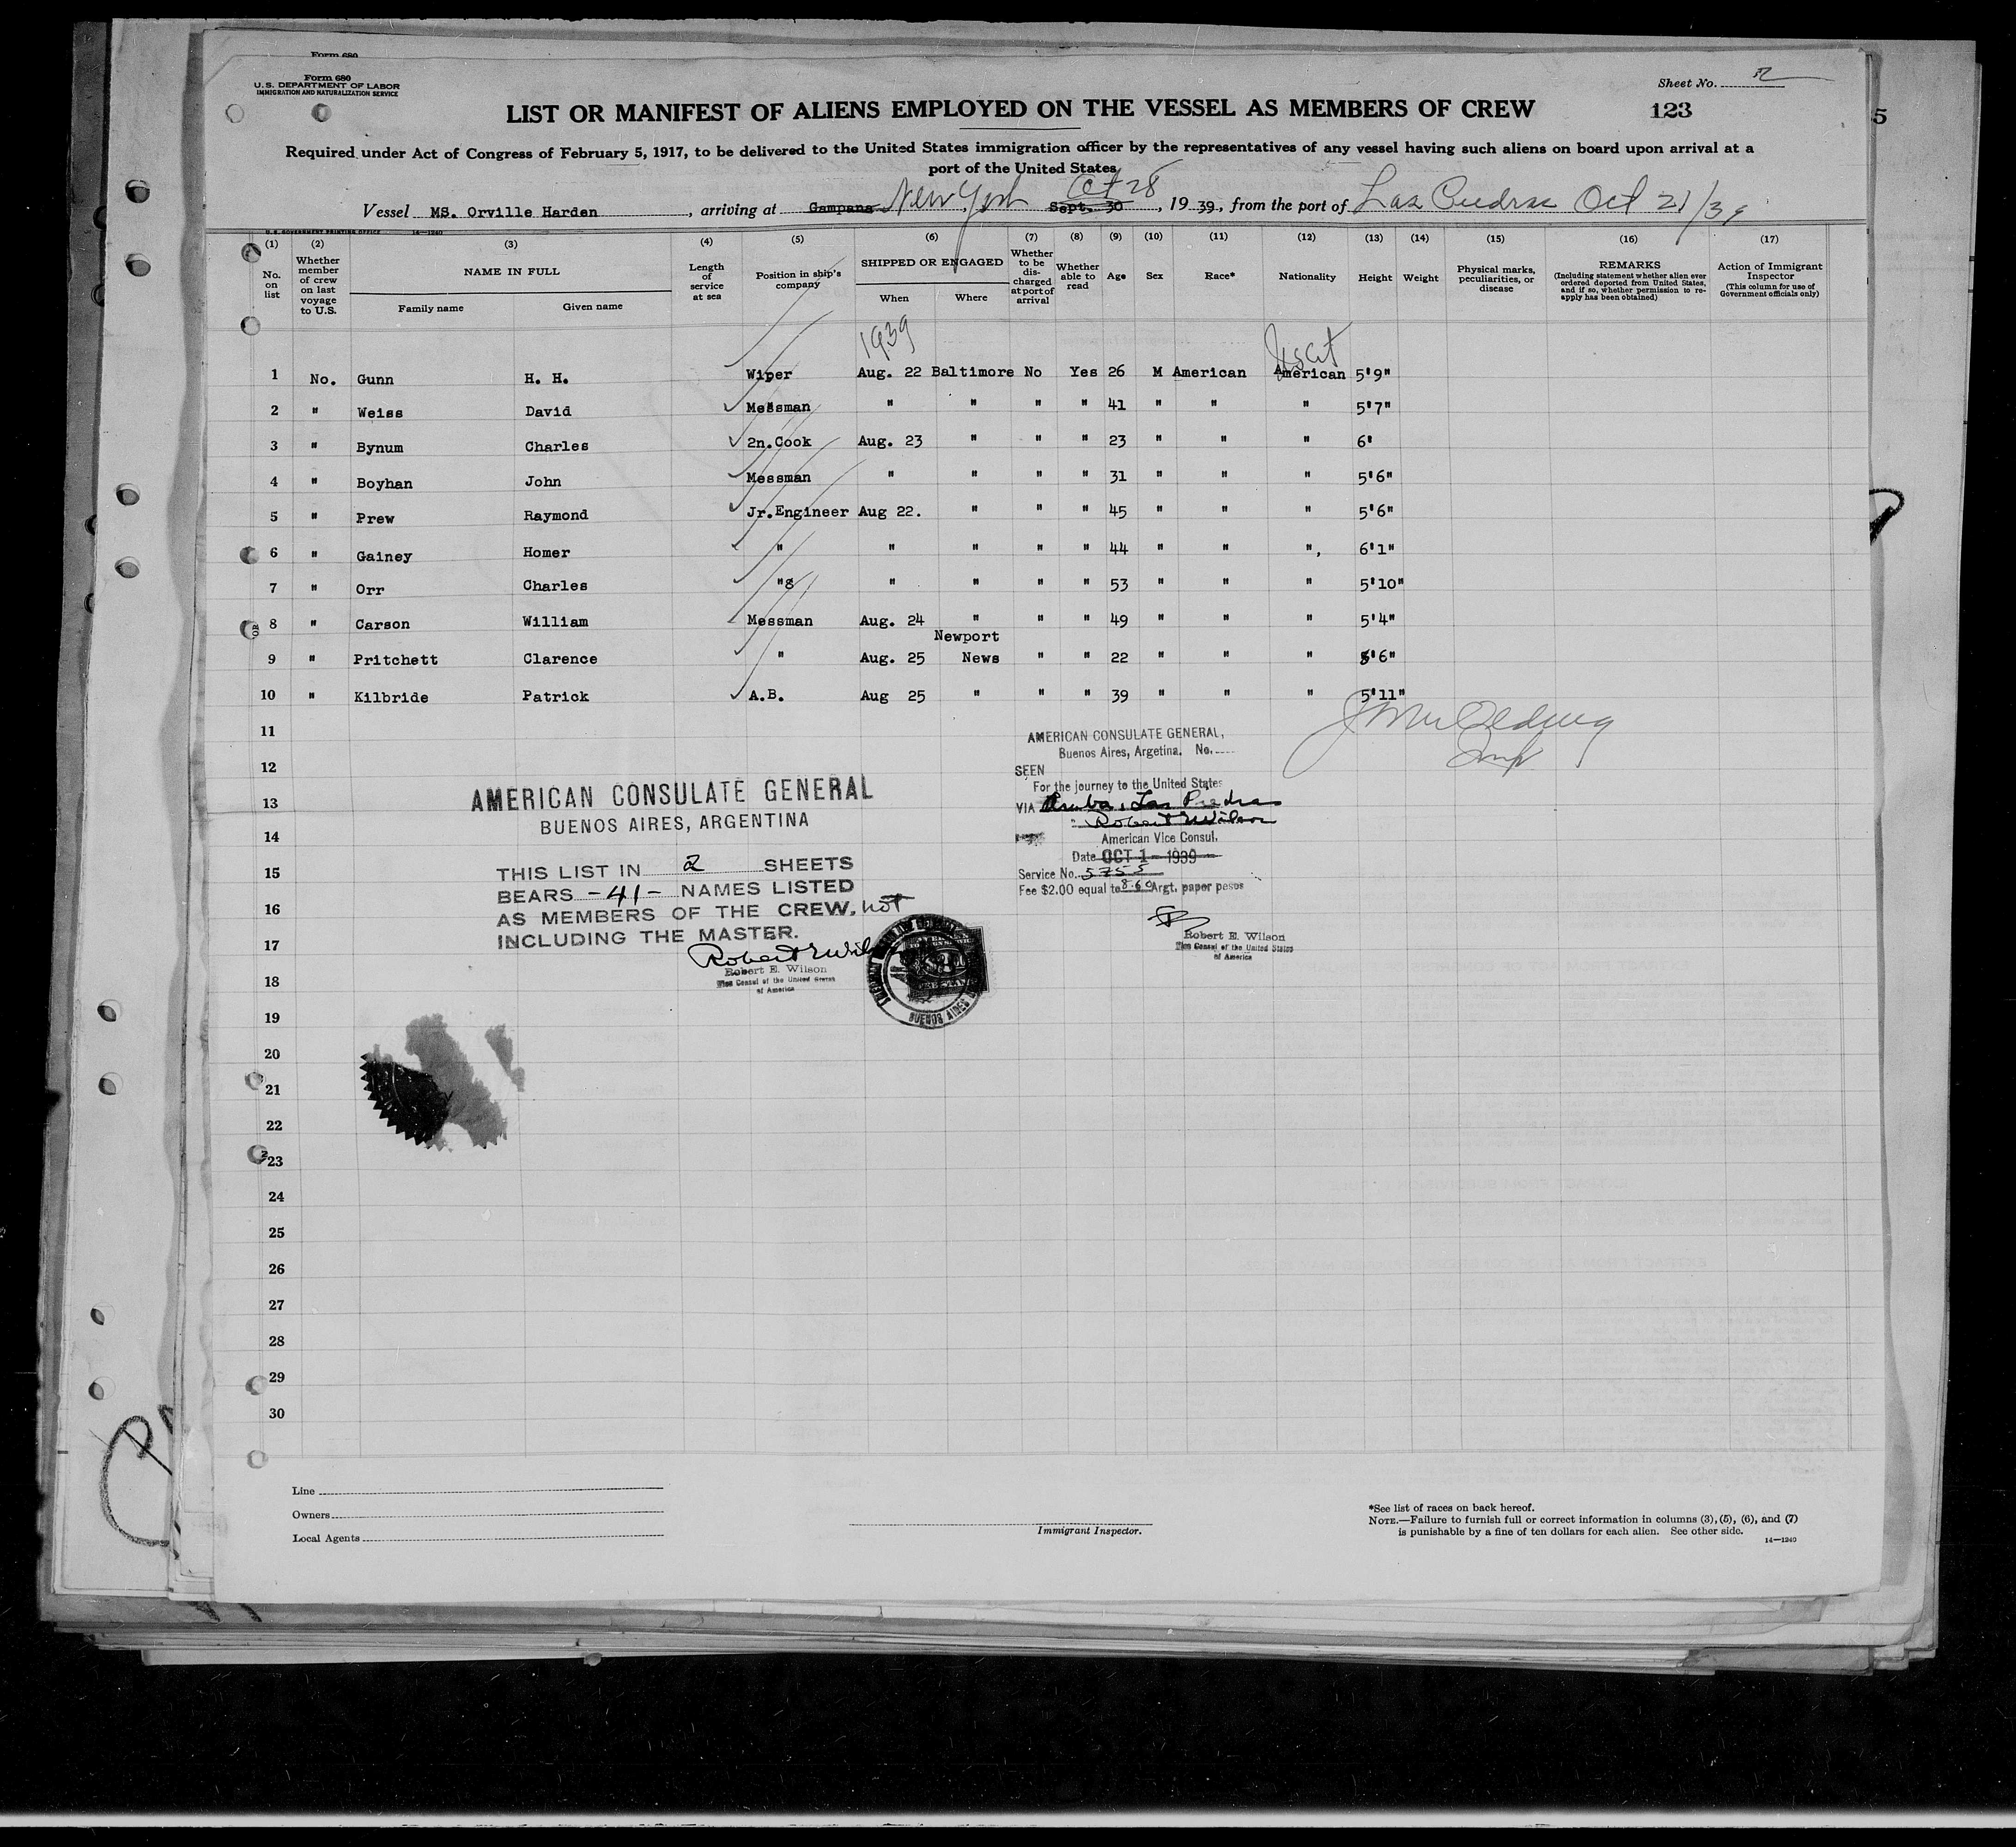 Form 680
Form 680
U. S. DEPARTMENT OF LABOR
IMMIGRATION AND NATURALIZATION SERVICE
Sheet No. 2
LIST OR MANIFEST OF ALIENS EMPLOYED ON THE VESSEL AS MEMBERS OF CREW
123
5
Required under Act of Congress of February 5, 1917, to be delivered to the United States immigration officer by the representatives of any vessel having such aliens on board upon arrival at a
port of the United States
Vessel MS. Orville Harden, arriving at Campana New York Sept. 30 Oct 28, 1939, from the port of Las Piedras Oct 21/39
U. S. GOVERNMENT PRINTING OFFICE 14—1240
(1) (2) (3) (4) (5) (6) (7) (8) (9) (10) (11) (12) (13) (14) (15) (16) (17)
No. on list
Whether member of crew on last voyage to U.S.
NAME IN FULL
Family name Given name
Length of service at sea
Position in ship's company
SHIPPED OR ENGAGED
When Where
Whether to be discharged at port of arrival
Whether able to read
Age
Sex
Race*
Nationality
Height
Weight
Physical marks, peculiarities, or disease
REMARKS
(Including statement whether alien ever ordered deported from United States, and if so, whether permission to reapply has been obtained)
Action of Immigrant Inspector
(This column for use of Government officials only)
1939
1 No. Gunn H. H. Wiper Aug. 22 Baltimore No Yes 26 M American American 5'9"
2 " Weiss David Messman " " " " 41 " " " 5'7"
3 " Bynum Charles 2n.Cook Aug. 23 " " " 23 " " " 6'
4 " Boyhan John Messman " " " " 31 " " " 5'6"
5 " Prew Raymond Jr.Engineer Aug 22. " " " 45 " " " 5'6"
6 " Gainey Homer " " " " " 44 " " ", 6'1"
7 " Orr Charles "8 " " " " 53 " " " 5'10"
8 " Carson William Messman Aug. 24 " " " 49 " " " 5'4"
9 " Pritchett Clarence " Aug. 25 Newport News " " 22 " " " 5'6"
10 " Kilbride Patrick A.B. Aug 25 " " " 39 " " " 5'11"
11
12
13
14
15
16
17
18
19
20
21
22
23
24
25
26
27
28
29
30
AMERICAN CONSULATE GENERAL,
Buenos Aires, Argetina. No.
SEEN
For the journey to the United States
VIA Aruba, Las Piedras
Robert E Wilson
American Vice Consul.
Date OCT 1 - 1939
Service No. 5755
Fee $2.00 equal to 8.60 Argt. paper pesos
Robert E. Wilson
Vice Consul of the United States
of America
AMERICAN CONSULATE GENERAL
BUENOS AIRES, ARGENTINA
THIS LIST IN 2 SHEETS
BEARS -41- NAMES LISTED
AS MEMBERS OF THE CREW, not
INCLUDING THE MASTER.
Robert E Wilson
Robert E. Wilson
Vice Consul of the United States
of America
BUENOS AIRES
Line
Owners
Local Agents
Immigrant Inspector.
*See list of races on back hereof.
NOTE.—Failure to furnish full or correct information in columns (3), (5), (6), and (7)
is punishable by a fine of ten dollars for each alien. See other side.
14—1240